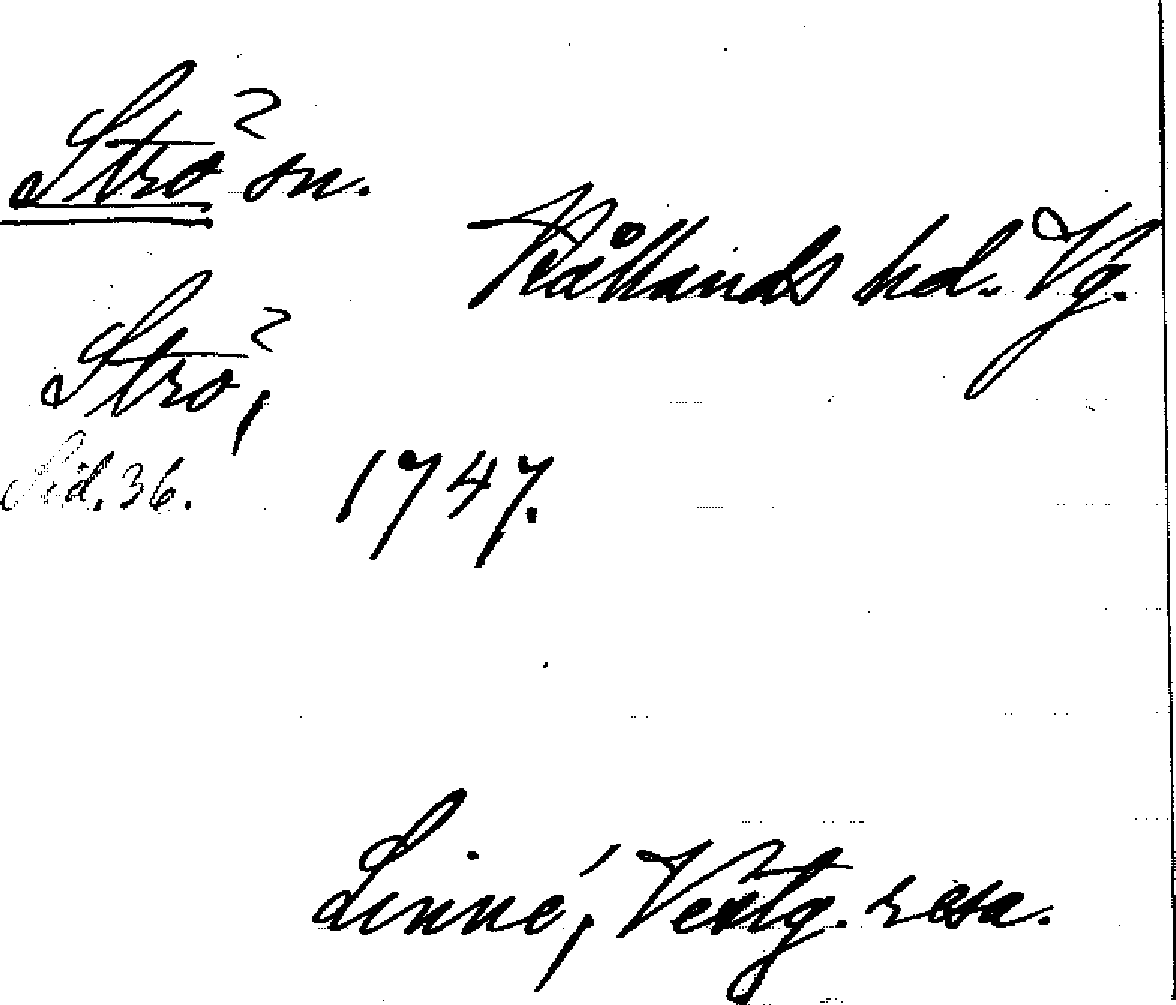 Strö sn.
Kållands hd. Vg.
Strö,
Sid. 36.
1747.
Linné, Vestg. resa.